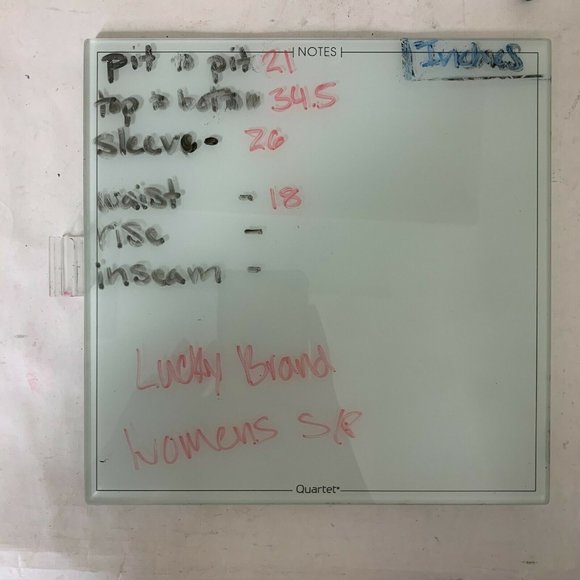 NOTES
Inches
pit to pit 21
top to bottom 34.5
sleeve - 26
waist - 18
rise -
inseam -
Lucky Brand
Womens S/P
Quartet